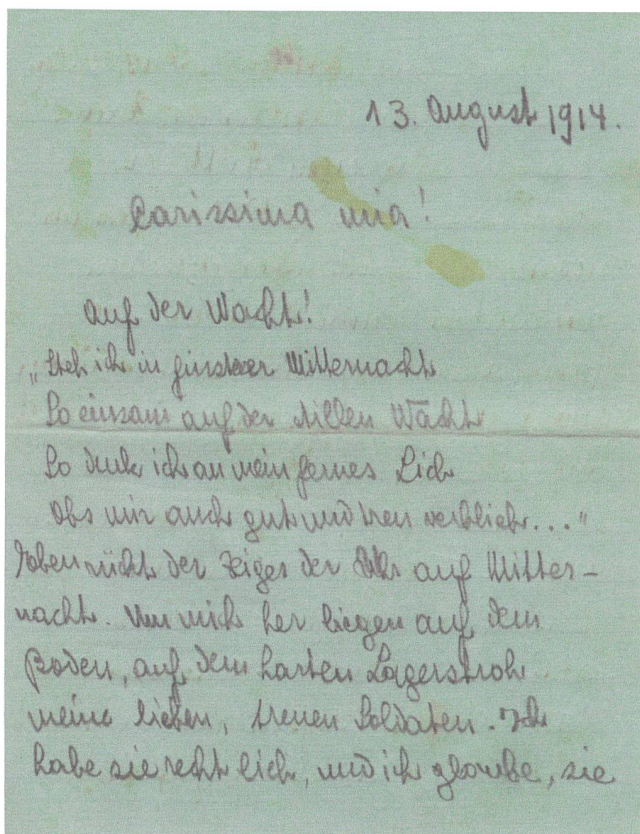 13. August 1914.
Carissima mia!
Auf der Wacht!
„Steh ich in finsterer Mitternacht
So einsam auf der stillen Wacht
So denk ich an mein fernes Lieb
Obs mir auch gut und treu verblieb..."
Eben rückt der Zeiger der Uhr auf Mitter-
nacht. Um mich her liegen auf dem
Boden, auf dem harten Lagerstroh
meine lieben, treuen Soldaten. Ich
habe sie recht lieb, und ich glaube, sie